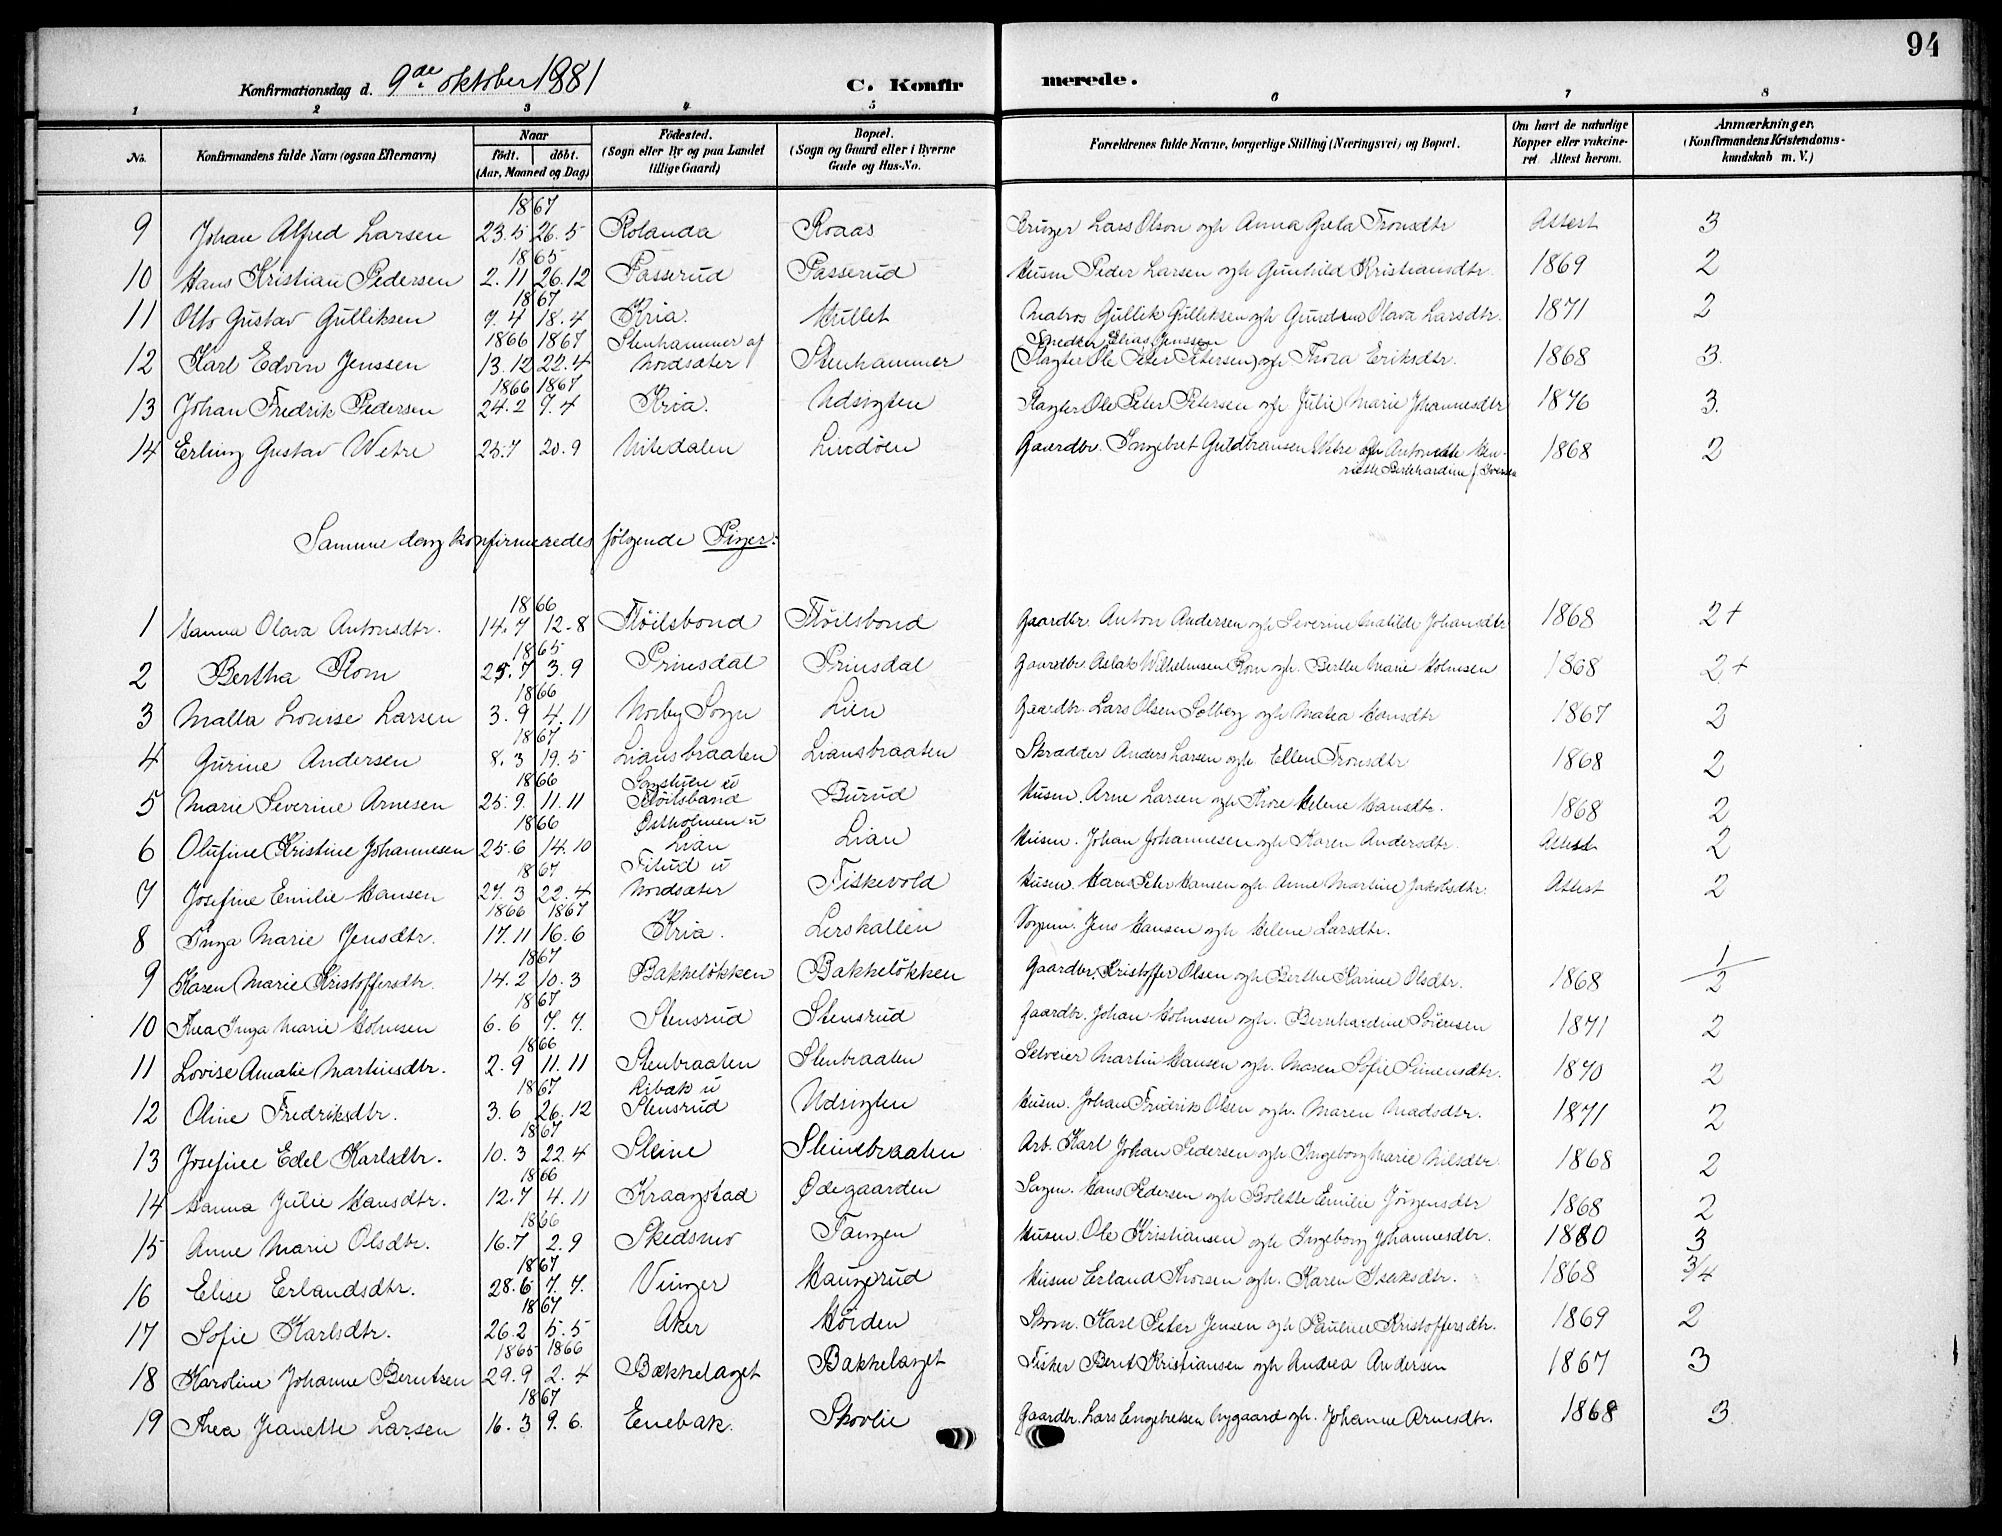 94
Konfirmationsdag d. 9de oktober 1881 C. Konfirmerede.
1 2 3 4 5 6 7 8
No. Konfirmandens fulde Navn (ogsaa Efternavn) Naar født. døbt. (Aar, Maaned og Dag) Fødested. (Sogn eller By og paa Landet tillige Gaard) Bopæl. (Sogn og Gaard eller i Byerne Gade og Hus-No. Forældrenes fulde Navne, borgerlige Stilling (Næringsvei) og Bopæl. Om havt de naturlige Kopper eller vakcineret. Attest herom. Anmærkninger. (Konfirmandens Kristendomskundskab m. V.)
1867
9 Johan Alfred Larsen 23.5 26.5 Rolanda Roaas Lars Olson og h Anna Greta Tronsdtr Attest 3
1865
10 Hans Kristian Pedersen 2.11 26.12 Passerud Passerud Husm Peder Larsen og h Gunhild Kristiansdtr. 1869 2
1867
11 Otto Gustav Gulliksen 7.4 18.4 Kria. Hullet Matros Gullik Gulliksen og h Olava Larsdtr. 1871 2
1866 1867 Stenhammer af Smeder Elias Jenssen
12 Karl Edvin Jenssen 13.12 22.4 Nordsæter Stenhammer (Slagter Ole Peter Petersen) og h Thora Eriksdtr. 1868 3.
1866 1867
13 Johan Fredrik Pedersen 24.2 7.4 Kria. Udsigten Slagter Ole Peter Petersen og h Julie Marie Johannesdtr 1876 3.
14 Erling Gustav Wetre 25.7 20.9 Nitedalen Lindøen Gaardbr. Ingebret Guldbransen Wetre og h Antonette Hen-
riette Bernhardine f. Iversen 1868 2
Samme dag konfirmeredes følgende Piger:
1866
1 Hanna Olava Antonsdtr. 14.7 12.8 Fløilsbond Fløilsbond Gaardbr. Anton Andersen og h Severine Matilde Johansdtr 1868 2+
1865
2 Bertha Rom 25.7 3.9 Prinsdal Prinsdal Gaardbr. Aslak Wilhelmsen Rom og h. Berthe Marie Holmsen 1868 2+
1866
3 Malla Lovise Larsen 3.9 4.11 Norby Sogn Lien Gaardbr. Lars Olsen Solberg og h Matea Hansdtr 1867 2
1867
4 Gurine Andersen 8.3 19.5 Liansbraaten Liansbraaten Skrædder Anders Larsen og h. Ellen Tronsdtr 1868 2
1866 u
5 Marie Severine Arnesen 25.9 11.11 Fløilsbond Burud Husm. Arne Larsen og h Thore Helene Hansdtr. 1868 2
1866 Østholmen u
6 Olufine Kristine Johannesen 25.6 14.10 Lian Lian Husm. Johan Johannesen og h Karen Andersdtr. Attest 2
1867 u
7 Josefine Emilie Hansen 27.3 22.4 Nordsæter Fiskevold Husm. Hans Peter Hansen og h. Anne Martine Jakobsdtr. Attest 2
1866 1867
8 Inga Marie Jensdtr. 17.11 16.6 Kria. Lerskallen Jens Hansen og h Helene Larsdtr.
1867
9 Karen Marie Kristoffersdtr. 14.2 10.3 Bakkeløkken Bakkeløkken Gaardbr. Kristoffer Olsen og h Berthe Karine Olsdtr. 1868 1/2
1867
10 Thea Inga Marie Holmsen 6.6 7.7. Stensrud Stensrud Gaardbr. Johan Holmsen og h. Bernhardine Sørensen 1871 2
1866
11 Lovise Amalie Martinsdtr. 2.9 11.11 Stenbraaten Stenbraaten Selveier Martin Hansen og h. Maren Sofie Simensdtr. 1870 2
1867 Ribak u
12 Oline Fredriksdtr. 3.6 26.12 Stensrud Udsigten Husm. Johan Fridrik Olsen og h. Maren Madsdtr. 1871 2
1867
13 Josefine Edel Karlsdtr. 10.3 22.4 Sleine Sleinebraaten Arb. Karl Johan Pedersen og h Ingeborg Marie Nilsdtr 1868 2
1866
14 Hanna Julie Hansdtr. 12.7 4.11 Kraagstad Ødegaarden Hans Pedersen og h Bolette Emilie Jørgensdtr 1868 2
1866
15 Anne Marie Olsdtr. 16.7 2.9 Skedsmo Tangen Husm. Ole Kristiansen og h Ingeborg Johannesdtr. 1880 3
1867
16 Elise Erlandsdtr. 28.6 7.7. Vinger Haugerud Husm Erland Thorsen og h. Karen Isaksdtr. 1868 3/4
1867
17 Sofie Karlsdtr. 26.2 5.5 Aker Høiden Skom. Karl Peter Jensen og h Pauline Kristoffersdtr. 1869 2
1865 1866
18 Karoline Johanne Berntsen 29.9 2.4 Bækkelaget Bækkelaget Fisker Bernt Kristiansen og h Andrea Andersen 1867 3
1867
19 Thea Jeanette Larsen 16.3 9.6. Enebak. Skovlie Gaardbr. Lars Engebretsen Nygaard og h. Johanne Arnesdtr. 1868 3.